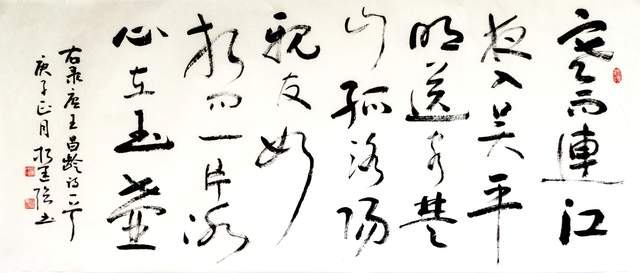 寒雨連江
夜入吴平
明送客楚
山孤洛陽
親友如
相问一片冰
心在玉壺
右录唐王昌龄诗一首
庚子正月 书